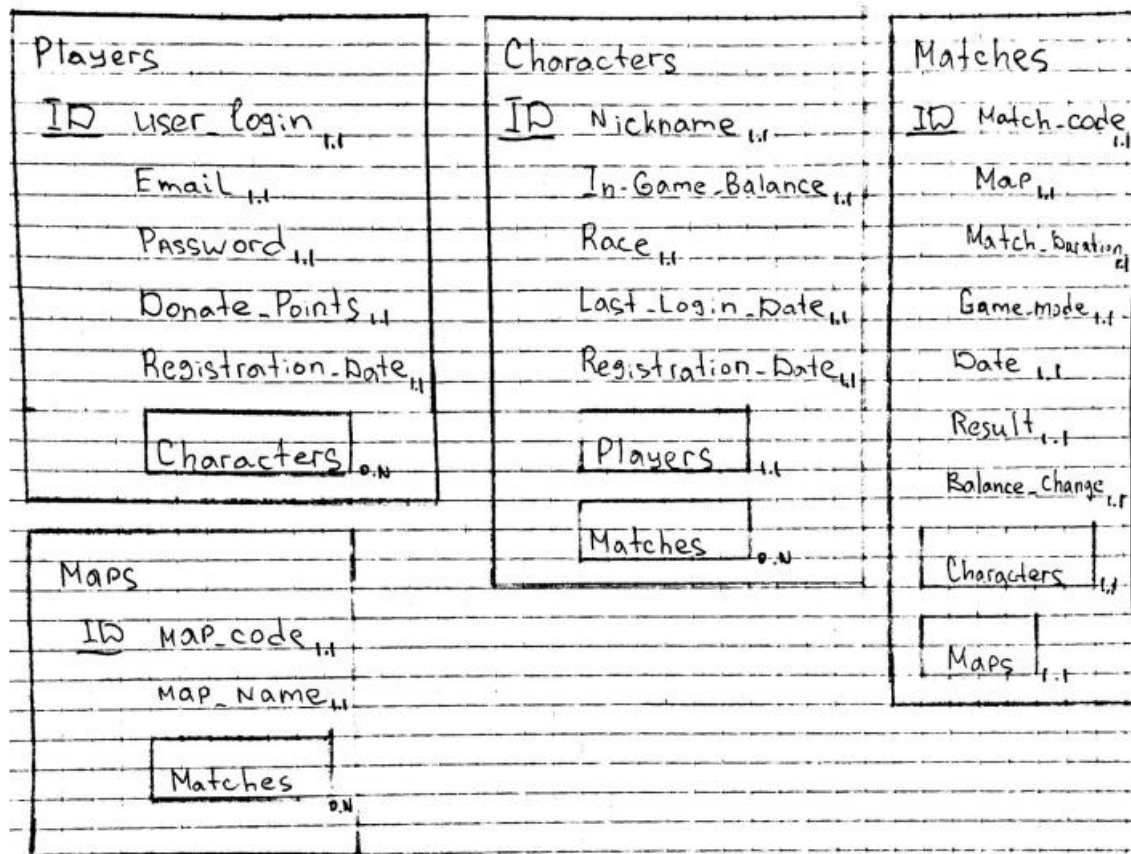 Players
ID user_login 1.1
Email 1.1
Password 1.1
Donate_Points 1.1
Registration_Date 1.1
Characters 0.N
Characters
ID Nickname 1.1
In-Game_Balance 1.1
Race 1.1
Last_Login_Date 1.1
Registration_Date 1.1
Players 1.1
Matches 0.N
Matches
ID Match_code 1.1
Map 1.1
Match_Duration
Game_mode 1.1
Date 1.1
Result 1.1
Balance_Change 1.1
Characters 1.1
Maps 1.1
Maps
ID Map_code 1.1
Map_Name 1.1
Matches 0.N